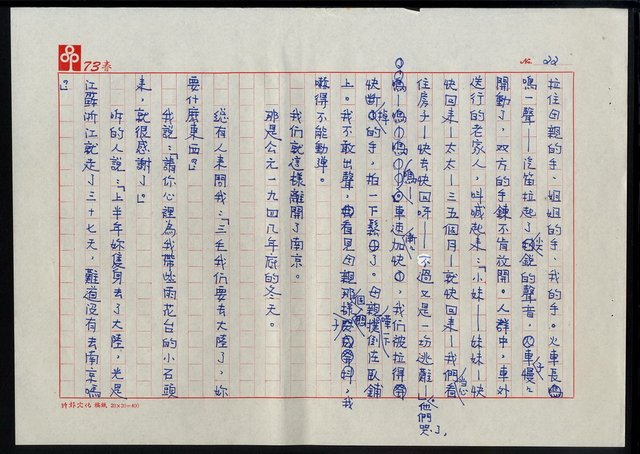 73春
No. 22
拉住母親的手、姐姐的手、我的手。火車長鳴
鳴一聲——汽笛拉起了尖銳的聲音,火車慢慢
開動了,双方的手鍊不肯放開。人群中,車外
送行的老家人,叫喊起來:「小妹——妹妹——快
快回來——太太——三五個月——就快回來——我們看
住房子——快去快回呀——不過又是一坊逃難——他們哭了,
嗚——嗚嗚——車速加快,我们被拉得
快斷掉的手,拍一下鬆了。母親撲倒在臥鋪
上。我不敢出聲,看見母親那樣
嚇得不能動彈。
我們就這樣離開了南京。
那是公元一九四八年底的冬天。
總有人來問我:「三毛我们要去大陸了,妳
要什麼東西?」
我說:「請你心裡為我帶些雨花台的小石頭
來,就很感謝了。」
听的人說:「上半年妳隻身去了大陸,光是
江蘇浙江就走了三十七天,難道沒有去南京嗎
?」
時報文化 稿紙 20×20=400